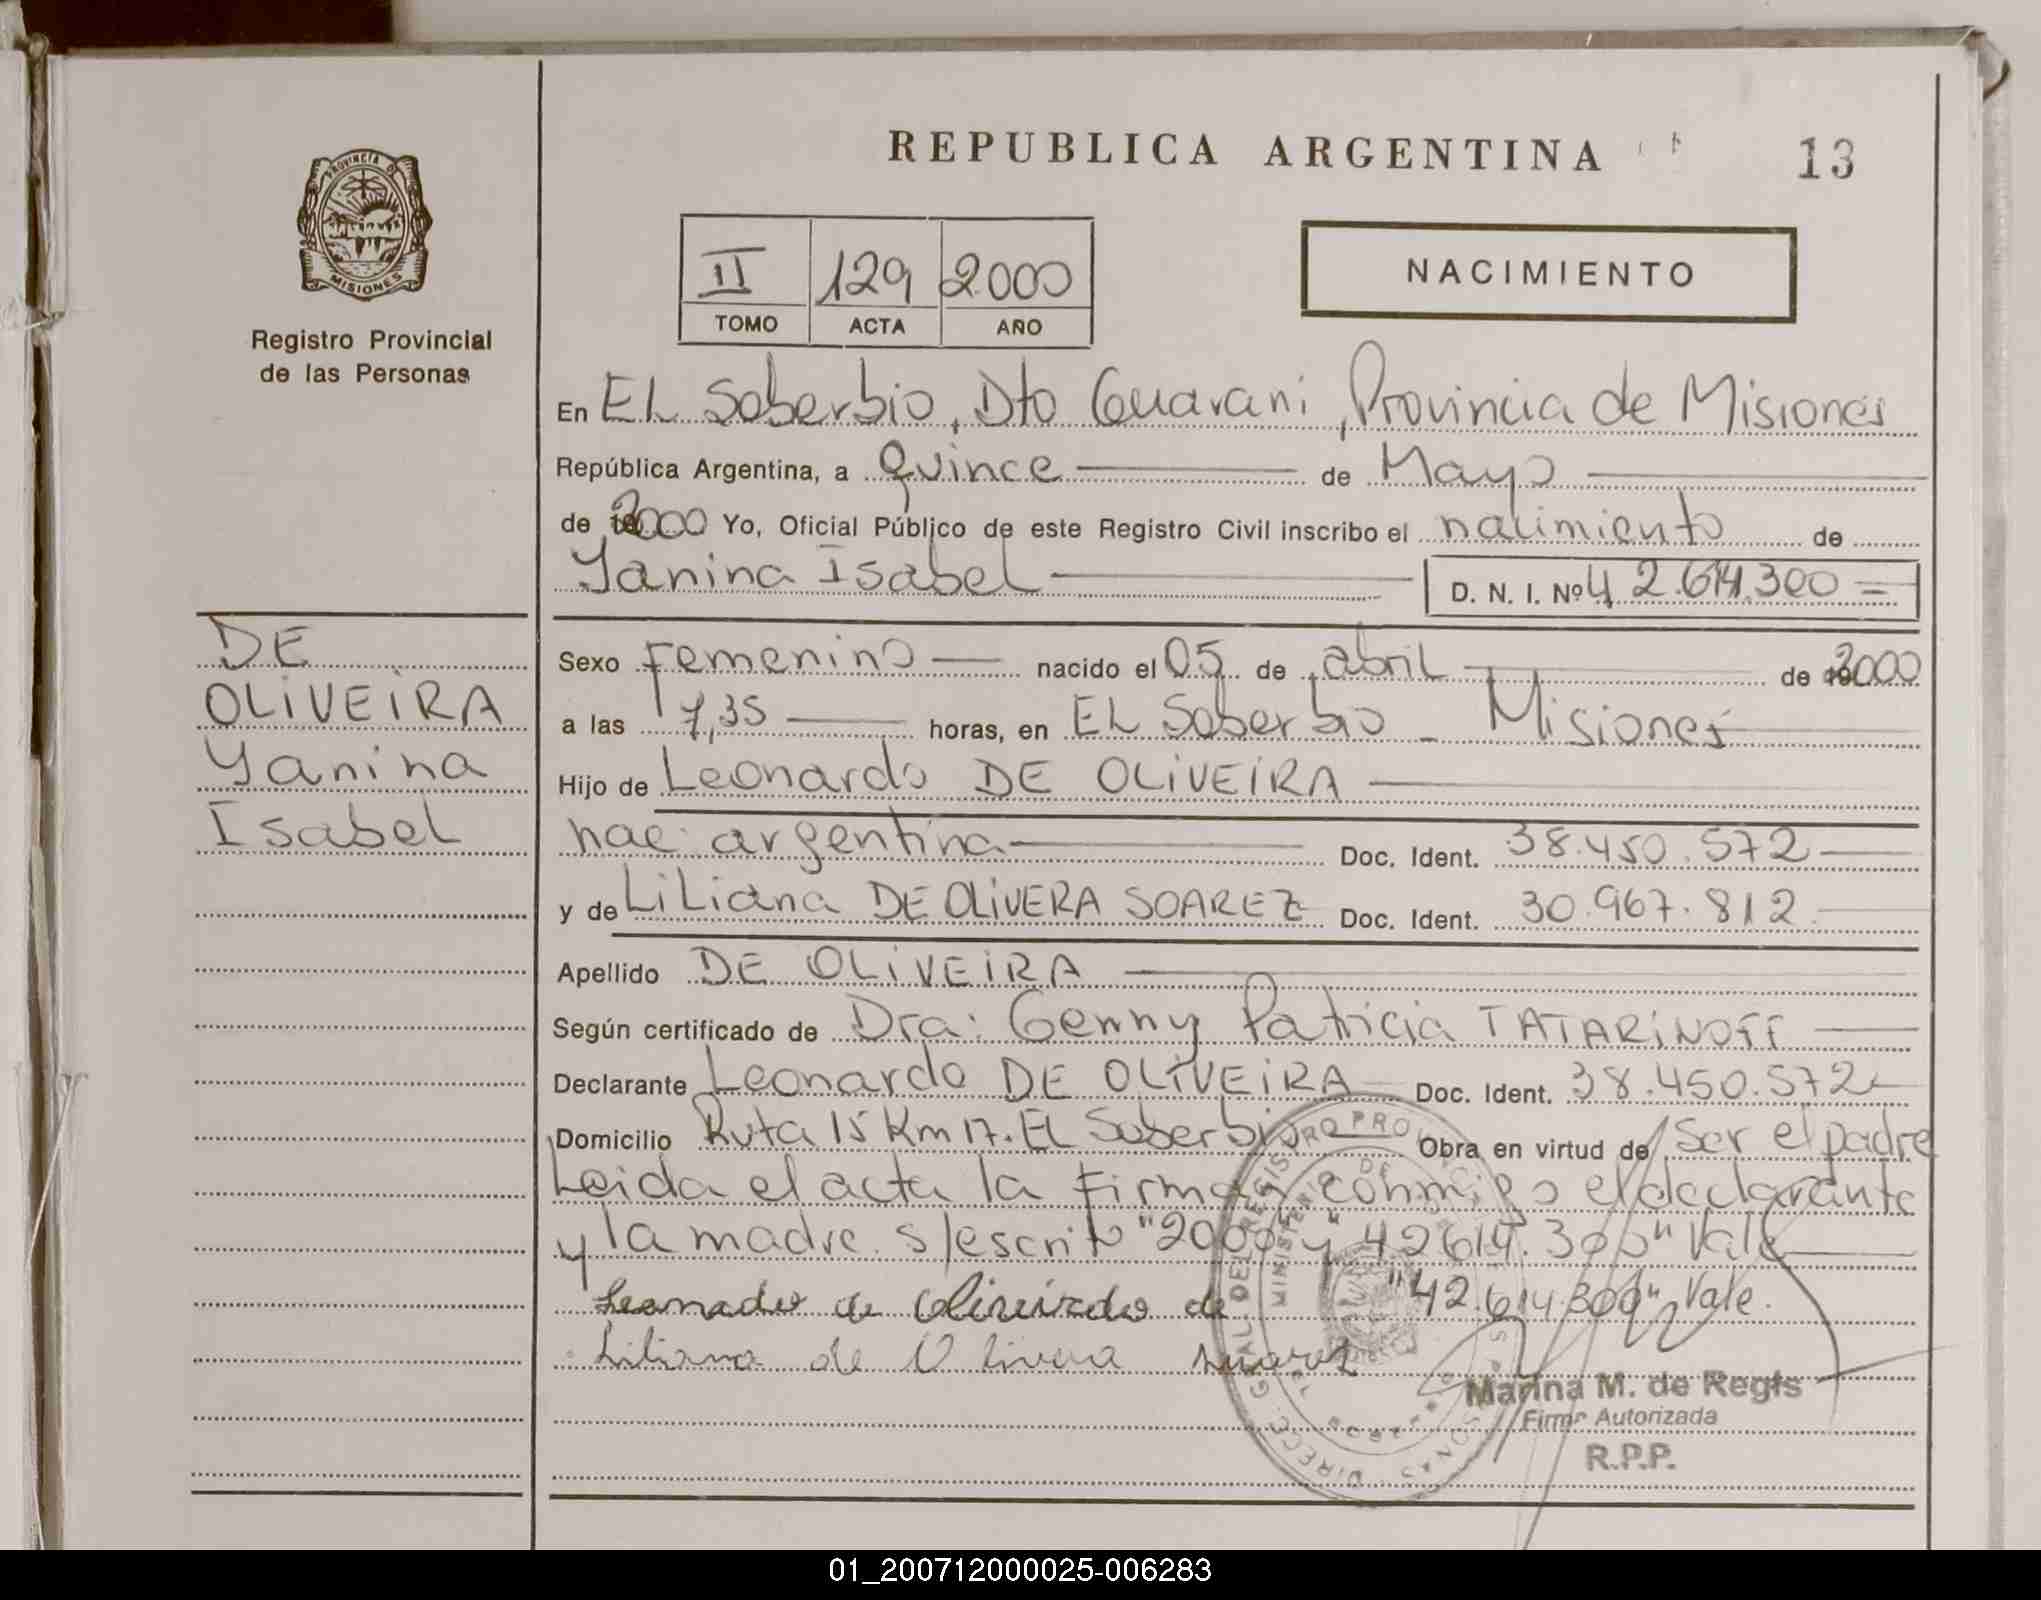 REPUBLICA ARGENTINA
13
PROVINCIA D
MISIONES
Registro Provincial
de las Personas
II 129 2000
TOMO ACTA AÑO
NACIMIENTO
En EL Soberbio, Dto Guarani, Provincia de Misiones
República Argentina, a quince de Mayo
de 2000 Yo, Oficial Público de este Registro Civil inscribo el nacimiento de
Yanina Isabel
D. N. I. Nº 42.614.300 =
DE
OLIVEIRA
Yanina
Isabel
Sexo Femenino nacido el 05 de abril de 2000
a las 7,35 horas, en EL Soberbio - Misiones
Hijo de Leonardo DE OLIVEIRA
nac. argentina Doc. Ident. 38.450.572
y de Liliana DE OLIVERA SOAREZ Doc. Ident. 30.967.812
Apellido DE OLIVEIRA
Según certificado de Dra: Genny Patricia TATARINOFF
Declarante Leonardo DE OLIVEIRA Doc. Ident. 38.450.572
Domicilio Ruta 15 Km 17. EL Soberbio Obra en virtud de ser el padre
Leida el acta la firman conmigo el declarante
y la madre. s/escrito "2000" y "42614.300" Vale
"42.614.300" Vale.
Liliana de Olivera
Marina M. de Regis
Firma Autorizada
R.P.P.
01_200712000025-006283